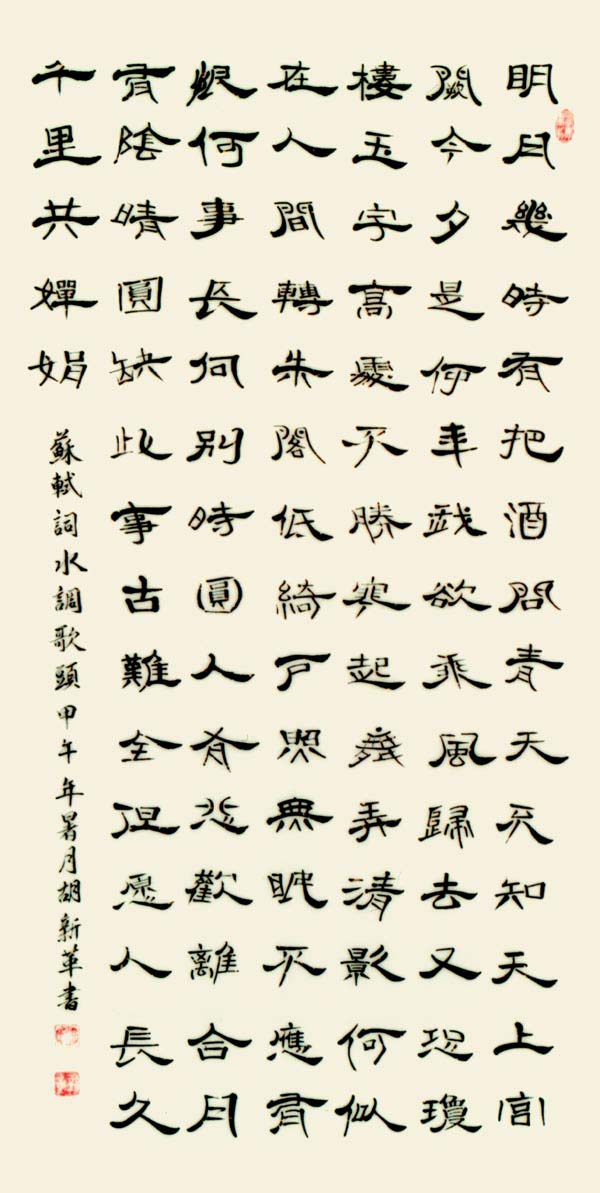 明月幾時有把酒問青天不知天上宮
闕今夕是何年我欲乘風歸去又恐瓊
樓玉宇高處不勝寒起舞弄清影何似
在人間轉朱閣低綺戶照無眠不應有
恨何事長向別時圓人有悲歡離合月
有陰晴圓缺此事古難全但愿人長久
千里共嬋娟
蘇軾詞水調歌頭甲午年暑月胡新革書